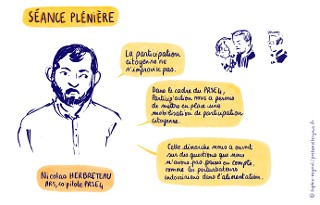 SÉANCE PLÉNIÈRE
La participation
citoyenne ne
s'improvise pas.
Dans le cadre du PRSE4,
Particip'action nous a permis
de mettre en place une
mobilisation de participation
citoyenne.
Cette démarche nous a ouvert
sur des questions que nous
n'avons pas prises en compte,
comme les perturbateurs
endocriniens dans l'alimentation.
Nicolas HERBRETEAU
ARS, copilote PRSE4